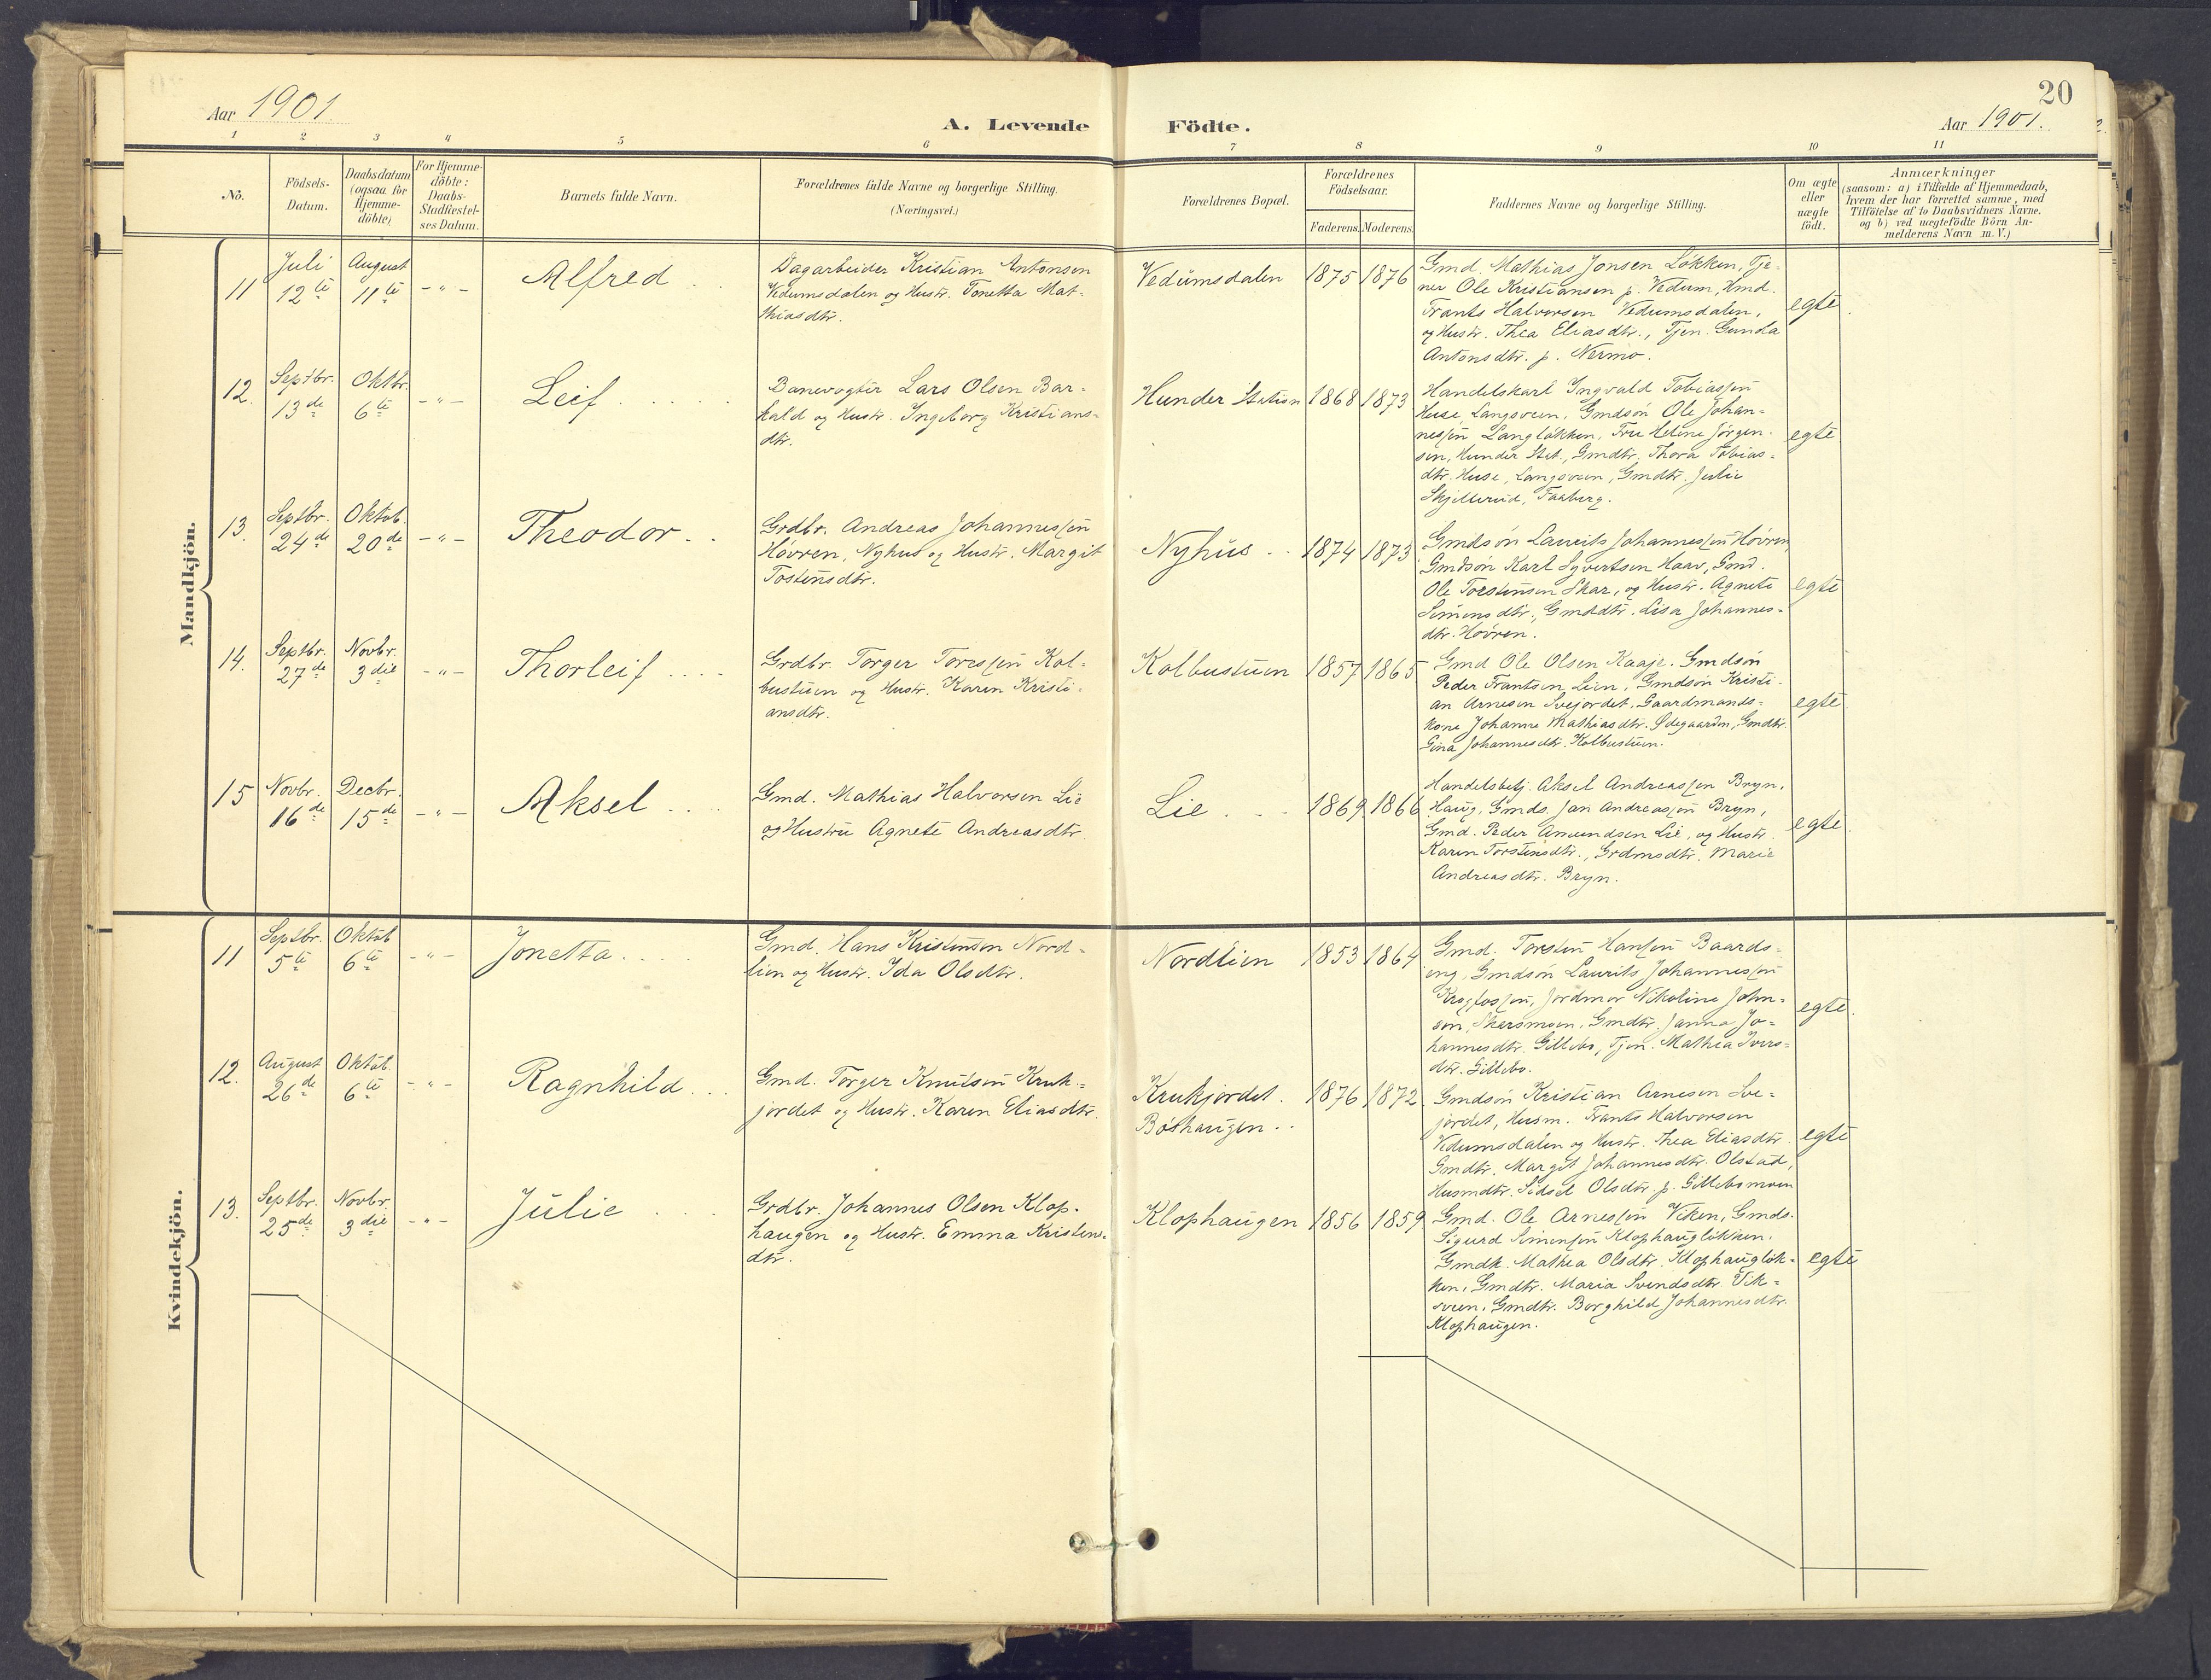 20
Aar 1901.
A. Levende Födte.
Aar 1901.
1 2 3 4 5 6 7 8 9 10 11
No.
Födsels-
Datum.
Daabsdatum
(ogsaa for
Hjemme-
döbte)
For Hjemme-
döbte:
Daabs-
Stadfæstel-
ses Datum.
Barnets fulde Navn.
Forældrenes fulde Navne og borgerlige Stilling.
(Næringsvei.)
Forældrenes Bopæl.
Forældrenes
Födselsaar.
Faderens. Moderens.
Faddernes Navne og borgerlige Stilling.
Om ægte
eller
uægte
födt.
Anmærkninger
(saasom: a) i Tilfælde af Hjemmedaab,
hvem der har forrettet samme, med
Tilföielse af to Daabsvidners Navne.
og b) ved uægtefödte Börn An-
melderens Navn m. V.)
Mandkjön.
11
Juli
12te
August
11te
- " -
Alfred
Dagarbeider Kristian Antonsen
Vedumsdalen og Hustr. Tonetta Mat-
thiasdtr.
Vedumsdalen
1875
1876
Gmd. Mathias Jonsen Løkken, Tje-
ner Ole Kristiansen p. Vedum, Hmd.
Frants Halvorsen Vedumsdalen,
og Hustr. Thea Eliasdtr., Tjen. Gunda
Antonsdtr. p. Nermo.
egte
12.
Septbr.
13de
Oktbr.
6te
- " -
Leif
Banevogter Lars Olsen Bar-
hald og Hustr. Ingeborg Kristians-
dtr.
Hunder Station
1868
1873
Handelskarl Ingvald Tobiassen
Huse Langsveen, Gmdsøn Ole Johan-
nessen Langløkken, Fru Helene Jørgen-
sen, Hunder Stat., Gmdtr. Thora Tobias-
dtr. Huse, Langsveen, Gmdtr. Julie
Skjellerud, Faaberg.
egte
13.
Septbr.
24de
Oktob.
20de
- " -
Theodor
Grdbr. Andreas Johannessen
Høvren, Nyhus og Hustr. Margit
Tostensdtr.
Nyhus
1874
1873
Gmdsøn Laurits Johannessen Høvren
Gmdsøn Karl Syvertsen Haav, Gmd.
Ole Torstensen Skar, og Hustr. Agnete
Simensdtr., Gmddtr. Lisa Johannes-
dtr. Høvren.
egte
14.
Septbr.
27de
Novbr.
3die
- " -
Thorleif
Grdbr. Torger Toressen Kol-
bustuen og Hustr. Karen Kristi-
ansdtr.
Kolbustuen
1857
1865
Gmd Ole Olsen Kaaje. Gmdsøn
Peder Frantsen Lien, Gmdsøn Kristi-
an Arnesen Svejordet, Gaardmands-
kone Johanne Mathiasdtr. Ødegaarden, Gmdtr.
Gina Johannesdtr. Kolbustuen.
egte
15
Novbr.
16de
Decbr.
15de
- " -
Aksel
Gmd. Mathias Halvorsen Lie
og Hustru Agnete Andreasdtr.
Lie
1869
1866
Handelsbetj. Aksel Andreassen Bryn,
Haug, Gmds. Jan Andreassen Bryn,
Gmd. Peder Amundsen Lie, og Hustr.
Karen Torstensdtr., Grdmsdtr. Marie
Andreasdtr. Bryn.
egte
Kvindekjön.
11
Septbr.
5te
Oktob
6te
- " -
Jonetta
Gmd. Hans Kristensen Nord-
lien og Hustr. Ida Olsdtr.
Nordlien
1853
1864
Gmd. Torsten Hansen Baards-
eng, Gmdsøn Laurits Johannessen
Jordmor Nikoline John-
sen, Gmdtr. Janna Jo-
hannesdtr. Gillebo, Tjen. Mathea Ivers-
dtr. Gillebo.
egte
12.
August
26de
Oktob.
6te
- " -
Ragnhild
Gmd. Torger Knutsen Kruk-
jordet og Hustr. Karen Eliasdtr.
Krukjordet.
Bøshaugen
1876
1872
Gmdsøn Kristian Arnesen Sve-
jordet, Husm. Frants Halvorsen
Vedumsdalen og Hustr. Thea Eliasdtr.
Gmdtr. Margit Johannesdtr. Olstad,
Husmdtr. Sidsel Olsdtr. p. Gillebomoen
egte
13.
Septbr.
25de
Novbr.
3die
- " -
Julie
Grdbr. Johannes Olsen Klop-
haugen og Hustr. Emma Kristens-
dtr.
Klophaugen
1856
1859
Gmd. Ole Arnessen Viken, Gmds.
Sigurd Simensen Klophaugløkken,
Gmdk. Mathea Olsdtr. Klophaugløk-
ken, Gmdtr. Maria Svendsdtr. Vik-
sveen, Gmdtr. Borghild Johannesdtr.
Klophaugen.
egte